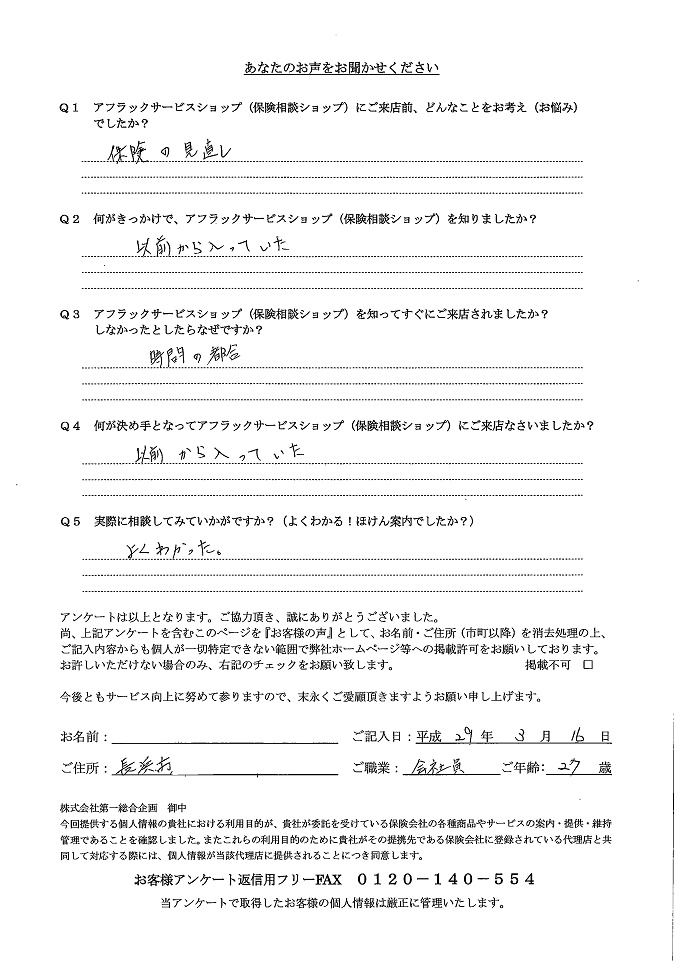 あなたのお声をお聞かせください
Q1 アフラックサービスショップ（保険相談ショップ）にご来店前、どんなことをお考え（お悩み）
でしたか？
保険の見直し
Q2 何がきっかけで、アフラックサービスショップ（保険相談ショップ）を知りましたか？
以前から入っていた
Q3 アフラックサービスショップ（保険相談ショップ）を知ってすぐにご来店されましたか？
しなかったとしたらなぜですか？
時間の都合
Q4 何が決め手となってアフラックサービスショップ（保険相談ショップ）にご来店なさいましたか？
以前から入っていた
Q5 実際に相談してみていかがですか？（よくわかる！ほけん案内でしたか？）
よくわかった。
アンケートは以上となります。ご協力頂き、誠にありがとうございました。
尚、上記アンケートを含むこのページを『お客様の声』として、お名前・ご住所（市町以降）を消去処理の上、
ご記入内容からも個人が一切特定できない範囲で弊社ホームページ等への掲載許可をお願いしております。
お許しいただけない場合のみ、右記のチェックをお願い致します。 掲載不可 □
今後ともサービス向上に努めて参りますので、末永くご愛顧頂きますようお願い申し上げます。
お名前： ご記入日：平成 29 年 3 月 16 日
ご住所：長浜市 ご職業：会社員 ご年齢：27 歳
株式会社第一総合企画 御中
今回提供する個人情報の貴社における利用目的が、貴社が委託を受けている保険会社の各種商品やサービスの案内・提供・維持
管理であることを確認しました。またこれらの利用目的のために貴社がその提携先である保険会社に登録されている代理店と共
同して対応する際には、個人情報が当該代理店に提供されることにつき同意します。
お客様アンケート返信用フリーFAX 0120－140－554
当アンケートで取得したお客様の個人情報は厳正に管理いたします。